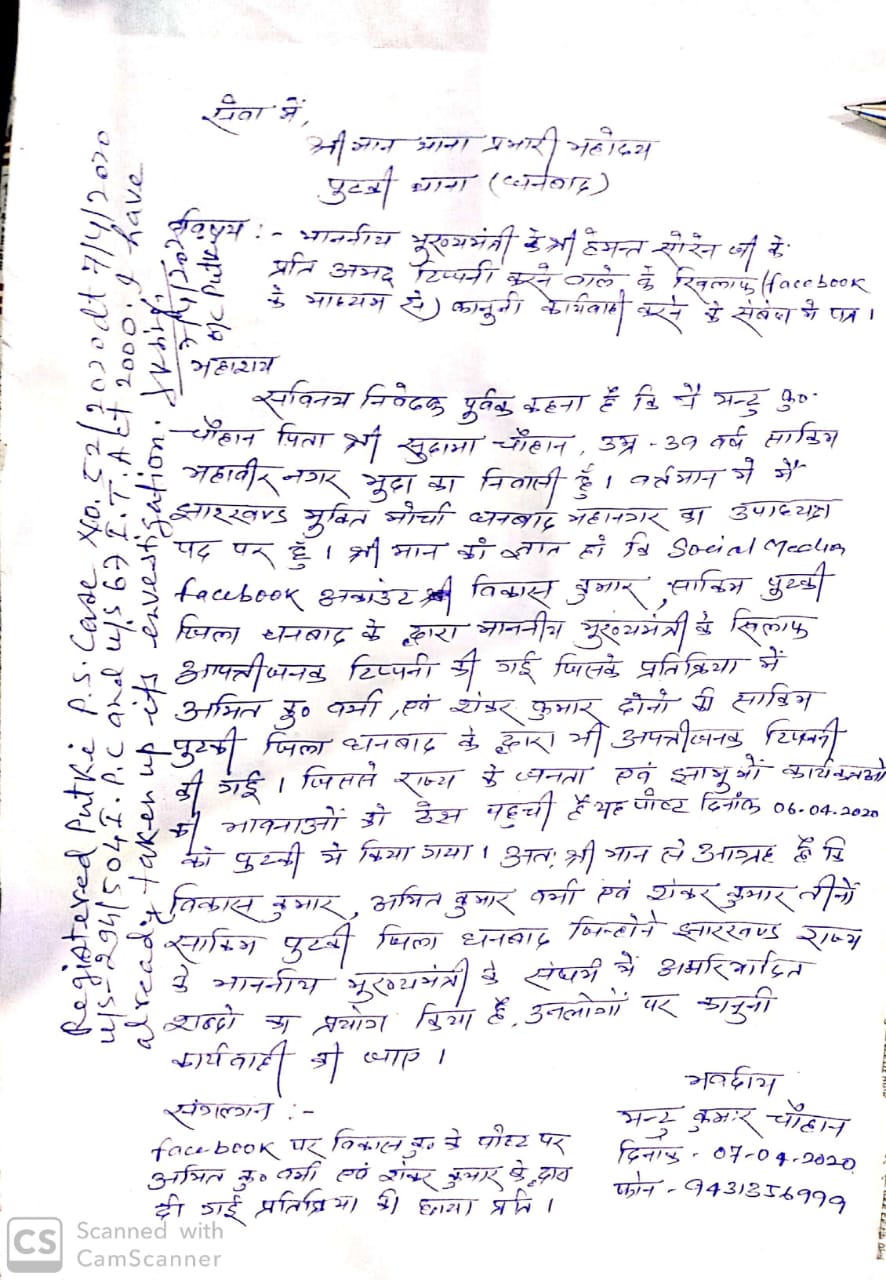 सेवा में,
श्री मान थाना प्रभारी महोदय
पुटकी थाना (धनबाद)
विषय :- माननीय मुख्यमंत्री के श्री हेमन्त सोरेन जी के
प्रति अभद्र टिप्पनी करने वाले के खिलाफ (facebook
के माध्यम से) कानुनी कार्यवाही करने के संबंध में पत्र।
महाशय
सविनय निवेदन पूर्वक कहना है कि मैं मन्टु कु०
चौहान पिता श्री सुदामा चौहान, उम्र - 39 वर्ष साकिम
महावीर नगर मुदा का निवासी हूँ। वर्तमान में मैं
झारखण्ड मुक्ति मोर्चा धनबाद महानगर का उपाध्यक्ष
पद पर हूँ। श्री मान को ज्ञात हो कि Social Media
facebook अकाउंट श्री विकास कुमार, साकिम पुटकी
जिला धनबाद के द्वारा माननीय मुख्यमंत्री के खिलाफ
आपत्तीजनक टिप्पनी की गई जिसके प्रतिक्रिया में
अमित कु० वर्मा, एवं शंकर कुमार दोनो की साकिम
पुटकी जिला धनबाद के द्वारा भी अपत्तीजनक टिप्पनी
की गई। जिससे राज्य के जनता एवं झामुमो कार्यकत्ताओ
की भावनाओं को ठेस पहुची है यह पोस्ट दिनांक 06.04.2020
को पुटकी में किया गया। अतः श्री मान से आग्रह है कि
विकास कुमार, अमित कुमार वर्मा एवं शंकर कुमार तीनों
साकिम पुटकी जिला धनबाद जिन्होने झारखण्ड राज्य
के माननीय मुख्यमंत्री के संबंध में अमरियादित
शब्दो का प्रयोग किया है, उनलोगों पर कानुनी
कार्यवाही की जाए।
भवदीय
मन्टु कुमार चौहान
दिनांक - 07-04-2020
फोन - 9431356999
संगलग्न :-
facebook पर विकास कु० के पोस्ट पर
अमित कु० वर्मा एवं शंकर कुमार के द्वारा
दी गई प्रतिक्रिया की छाया प्रति।
Registered Putki P.S. Case No. 52/2020 dt 7/4/2020
u/s-294/504 I.P.C and u/s 67 I.T. Act 2000. I have
already taken up its investigation.
7/4/2020
O/C Putki
CS Scanned with
CamScanner